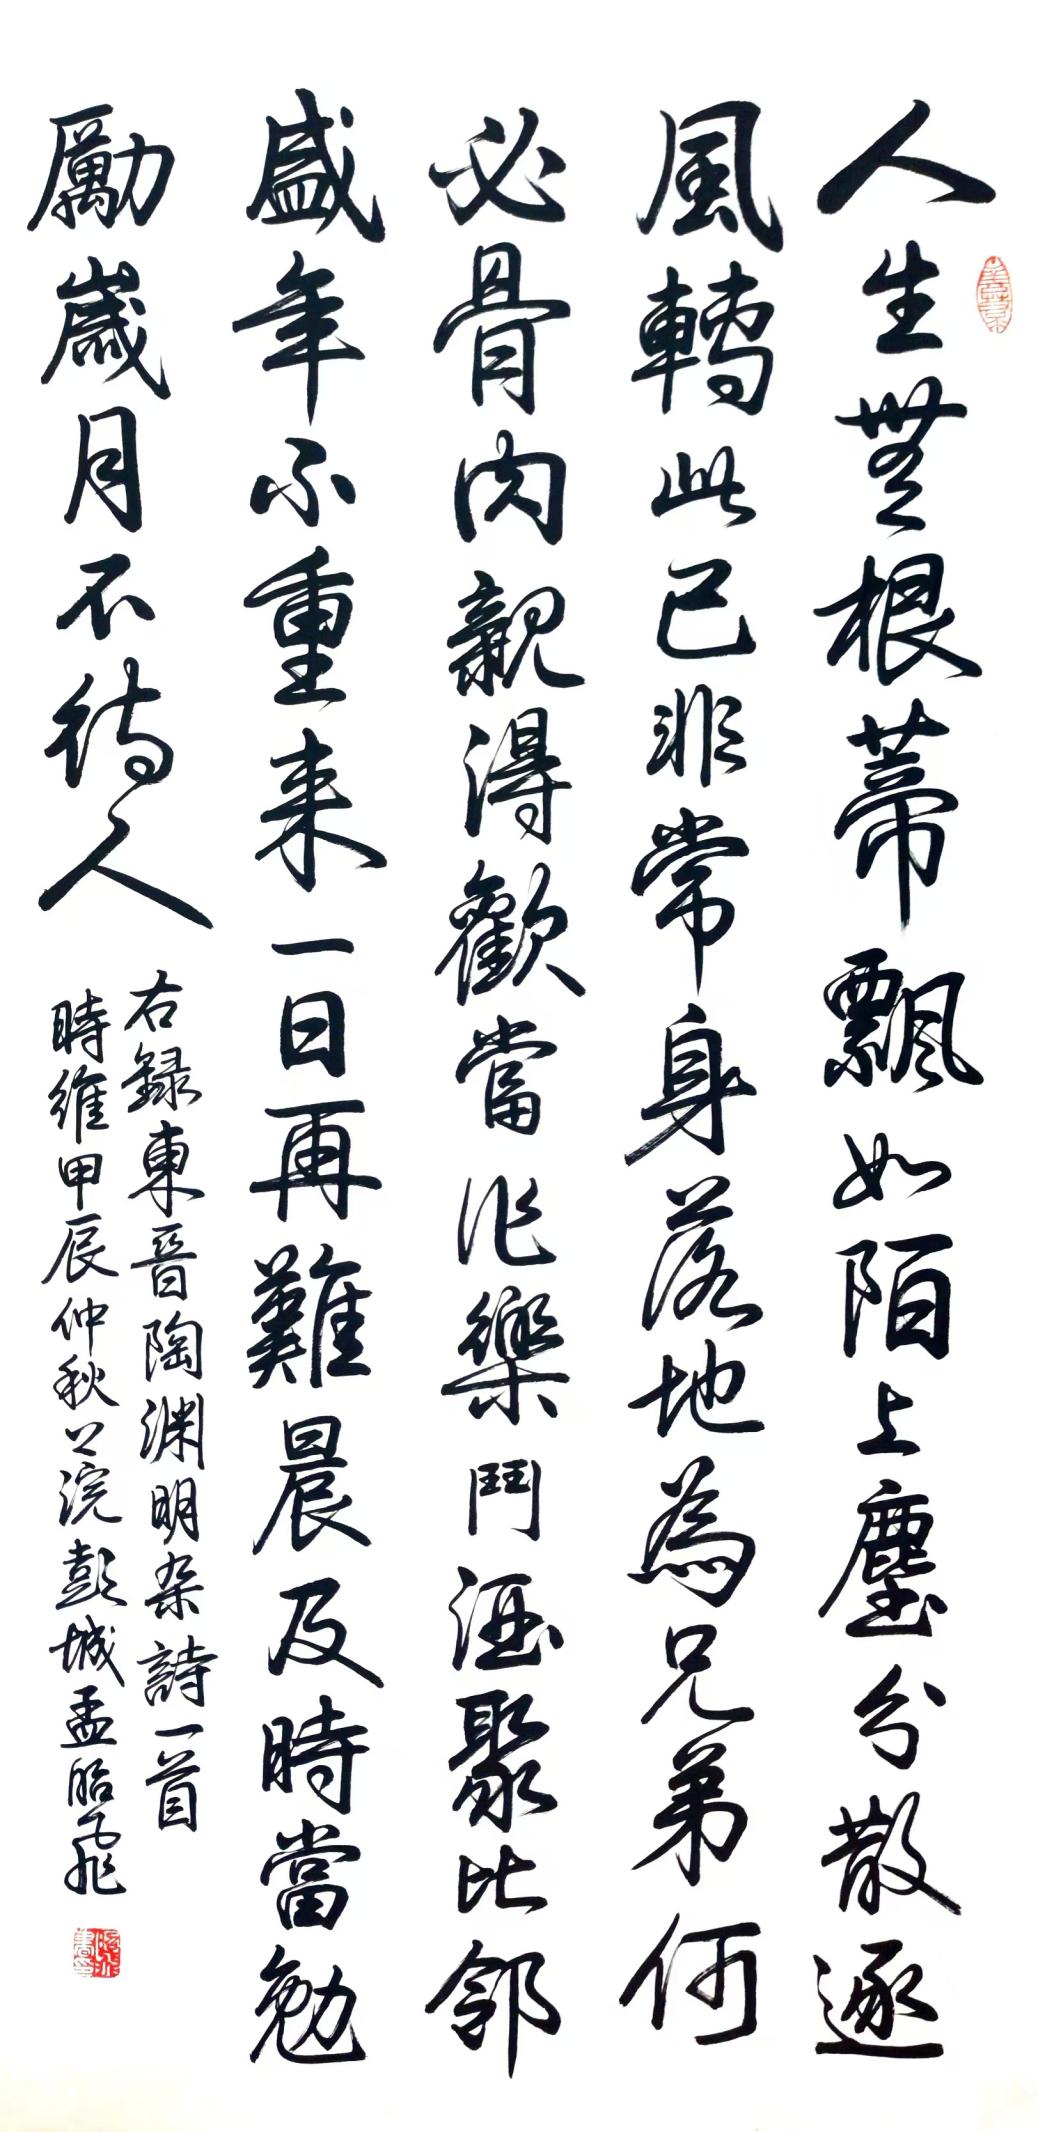 人生無根蒂飄如陌上塵分散逐
風轉此已非常身落地為兄弟何
必骨肉親得歡當作樂鬥酒聚比鄰
盛年不重来一日再難晨及時當勉
勵歲月不待人
右録東晉陶渊明杂詩一首
時維甲辰仲秋上浣彭城孟昭飛